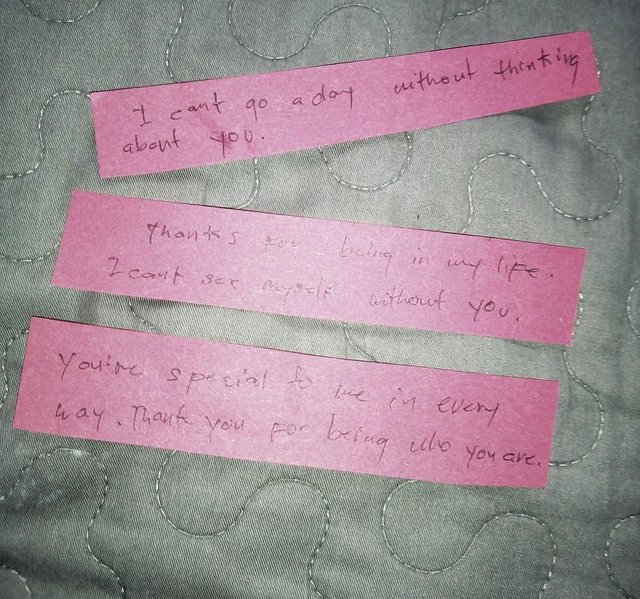 I cant go a day without thinking
about you.
Thanks for being in my life.
I cant see myself without you.
You're special to me in every
way. Thank you for being who you are.